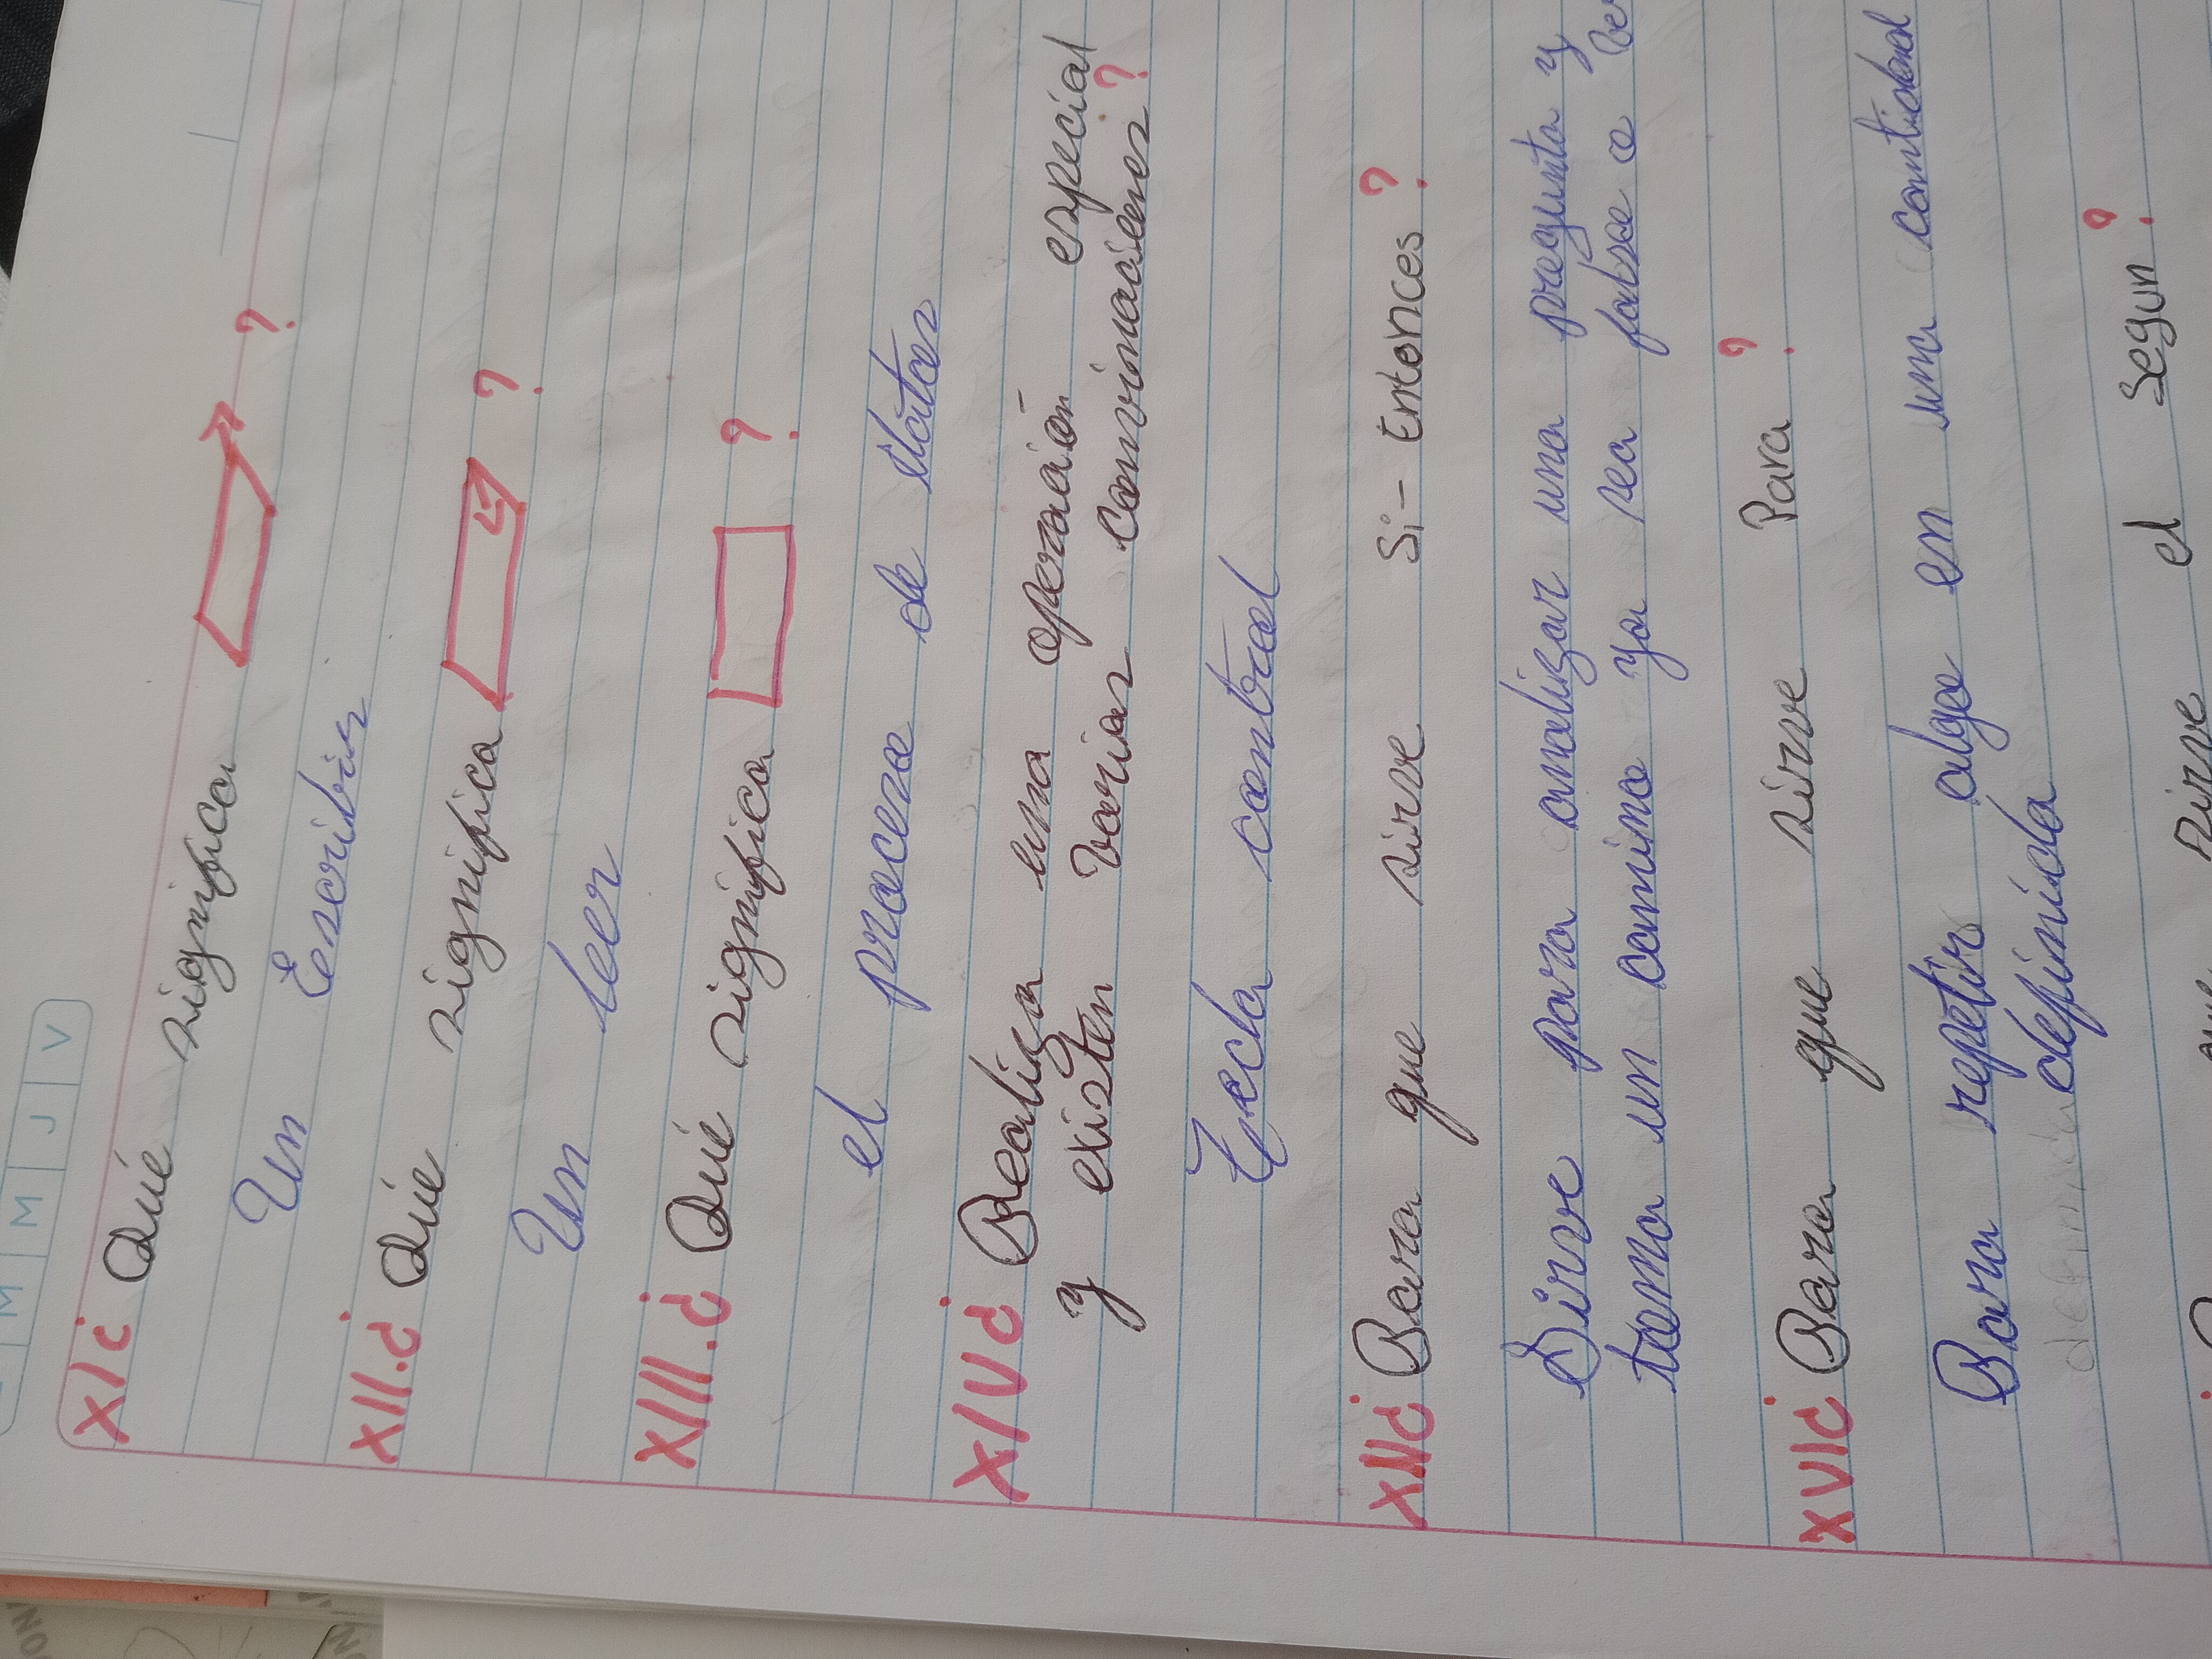 M M J V
XI¿ Qué significa ?
Un Escribir
XII.¿ Qué significa ?
Un leer
XIII.¿ Qué significa ?
el proceso de datos
XIV¿ Realiza una operación especial
y existen varias convinaciones ?
Tecla control
¿ Para que sirve Si- Entonces ?
Sirve para analizar una pregunta y
toma un camino ya sea falso o ver
XVI¿ Para que sirve Para ?
Para repetir algo en una cantidad
definida
definida
que sirve el Segun ?